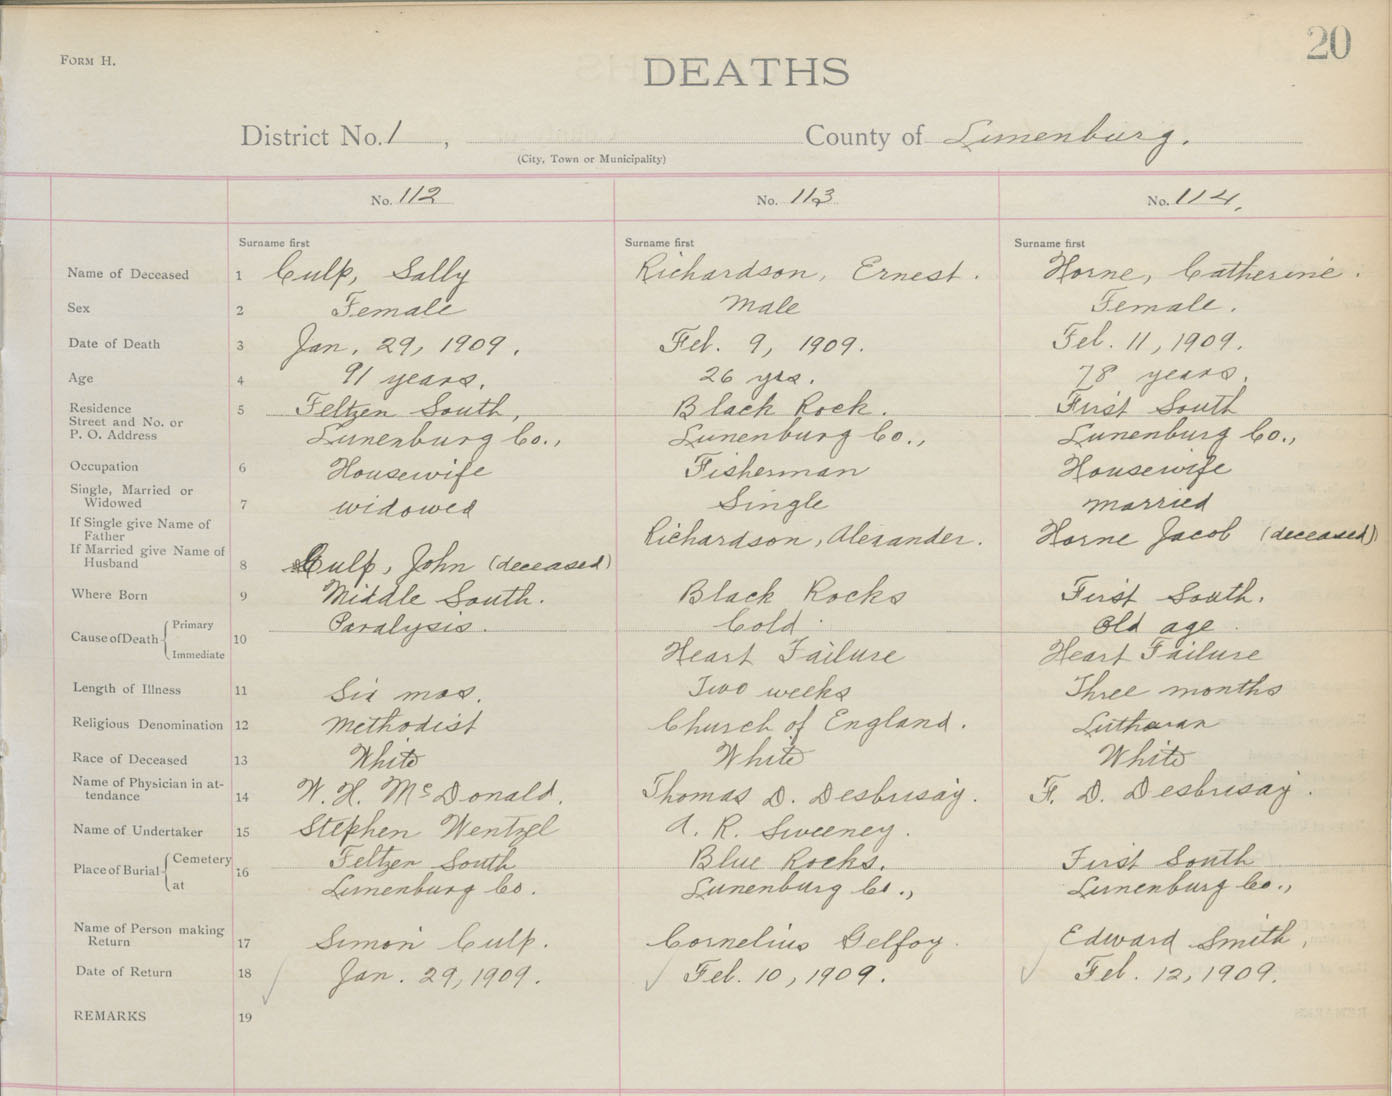 20
FORM H.
DEATHS
District No. 1 , County of Lunenburg.
(City, Town or Municipality)
No. 112 No. 113 No. 114.
Surname first Surname first Surname first
Name of Deceased 1 Culp, Sally Richardson, Ernest. Horne, Catherine.
Sex 2 Female Male Female.
Date of Death 3 Jan. 29, 1909. Feb. 9, 1909. Feb. 11, 1909.
Age 4 91 years. 26 yrs. 78 years.
Residence 5 Feltzen South, Black Rock. First South
Street and No. or
P. O. Address Lunenburg Co., Lunenburg Co., Lunenburg Co.,
Occupation 6 Housewife Fisherman Housewife
Single, Married or
Widowed 7 widowed Single married
If Single give Name of
Father Richardson, Alexander. Horne Jacob (deceased)
If Married give Name of
Husband 8 Culp, John (deceased)
Where Born 9 Middle South. Black Rocks First South.
Cause of Death Primary Paralysis. Cold Old age
10
Immediate Heart Failure Heart Failure
Length of Illness 11 Six mos. Two weeks Three months
Religious Denomination 12 Methodist Church of England. Lutheran
Race of Deceased 13 White White White
Name of Physician in at-
tendance 14 W. H. McDonald. Thomas D. Desbrisay. F. D. Desbrisay.
Name of Undertaker 15 Stephen Wentzel A. R. Sweeney.
Place of Burial Cemetery 16 Feltzen South Blue Rocks. First South
at Lunenburg Co. Lunenburg Co., Lunenburg Co.,
Name of Person making
Return 17 Simon Culp. Cornelius Gelfoy. Edward Smith,
Date of Return 18 Jan. 29, 1909. Feb. 10, 1909. Feb. 12, 1909.
REMARKS 19